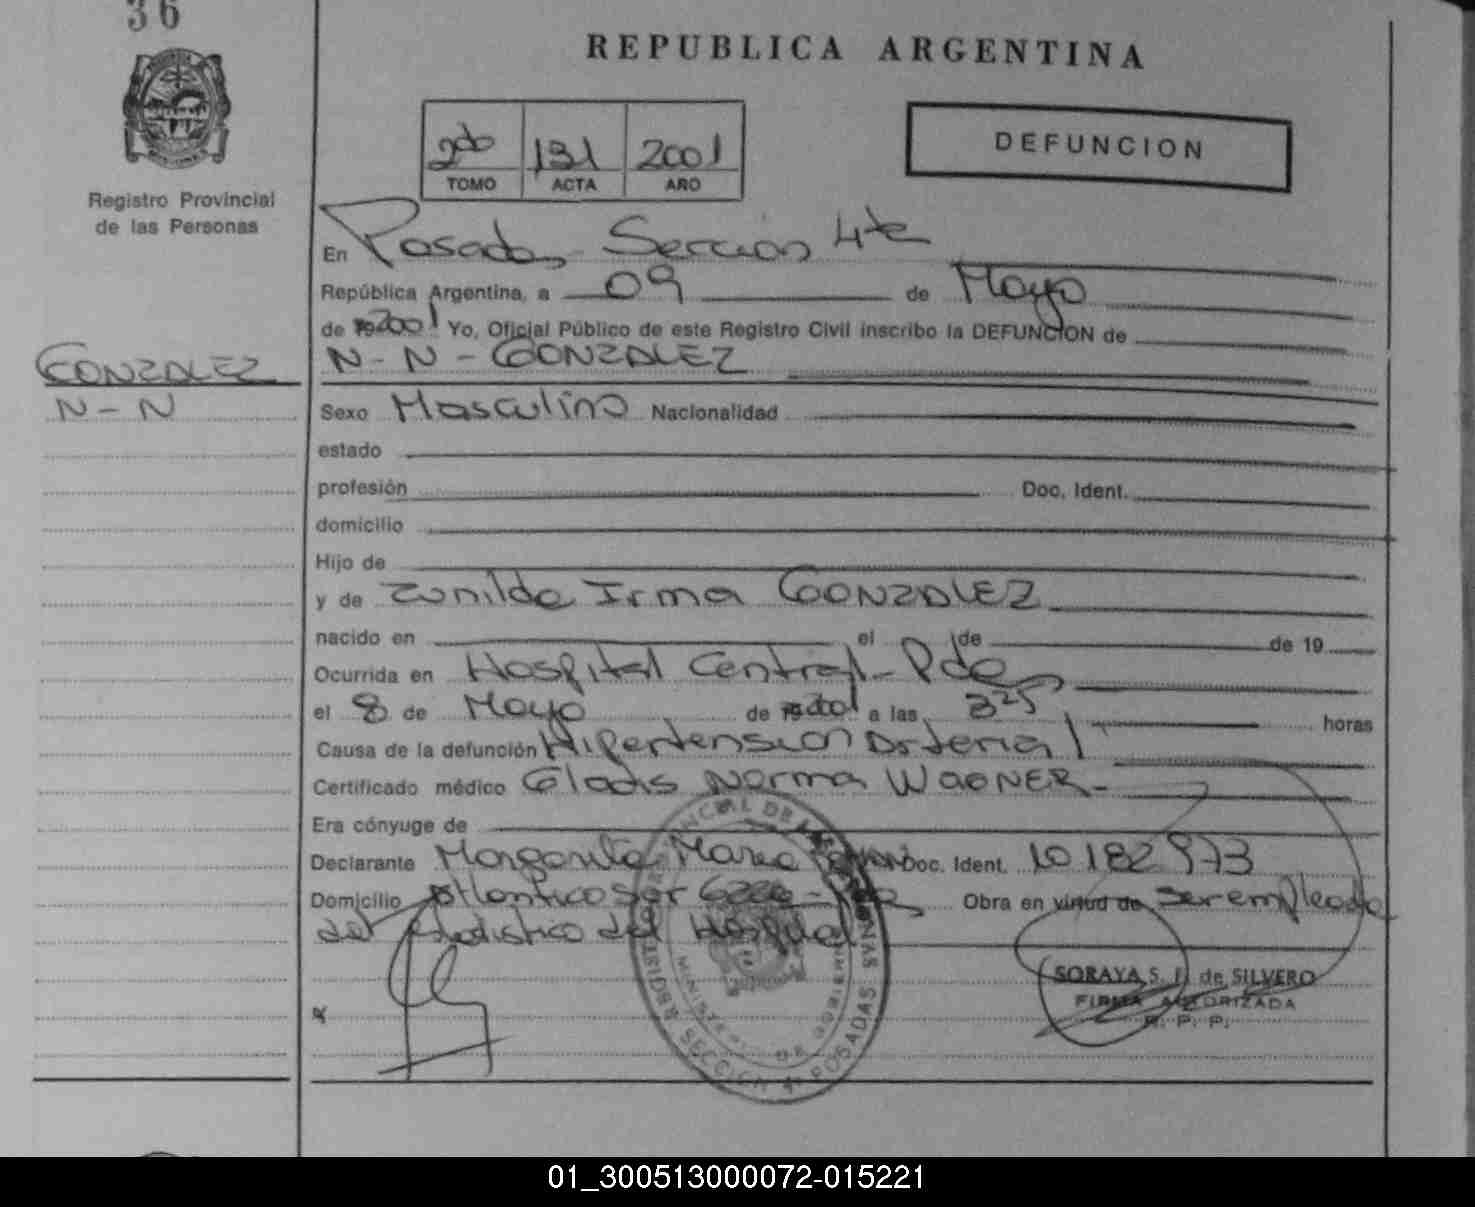 36
REPUBLICA ARGENTINA
2do 131 2001
TOMO ACTA AÑO
DEFUNCION
Registro Provincial
de las Personas
En Posadas Sección 4ta
República Argentina, a 09 de Mayo
de 2001 Yo, Oficial Público de este Registro Civil inscribo la DEFUNCION de
N-N-GONZALEZ
GONZALEZ
N-N
Sexo Masculino Nacionalidad
estado
profesión Doc. Ident.
domicilio
Hijo de
y de Zunilda Irma GONZALEZ
nacido en el de de 19
Ocurrida en Hospital Central-Pdas
el 8 de Mayo de 2001 a las 3 25 horas
Causa de la defunción Hipertension Arterial
Certificado médico Gladis Norma WAGNER-
Era cónyuge de
Declarante Margarita Maria Doc. Ident. 10182973
Domicilio Atlantico Sur Obra en virtud de ser empleada
del Hospital
SORAYA S. de SILVERO
FIRMA AUTORIZADA
R. P. P.
SECCION 4ª POSADAS
01_300513000072-015221